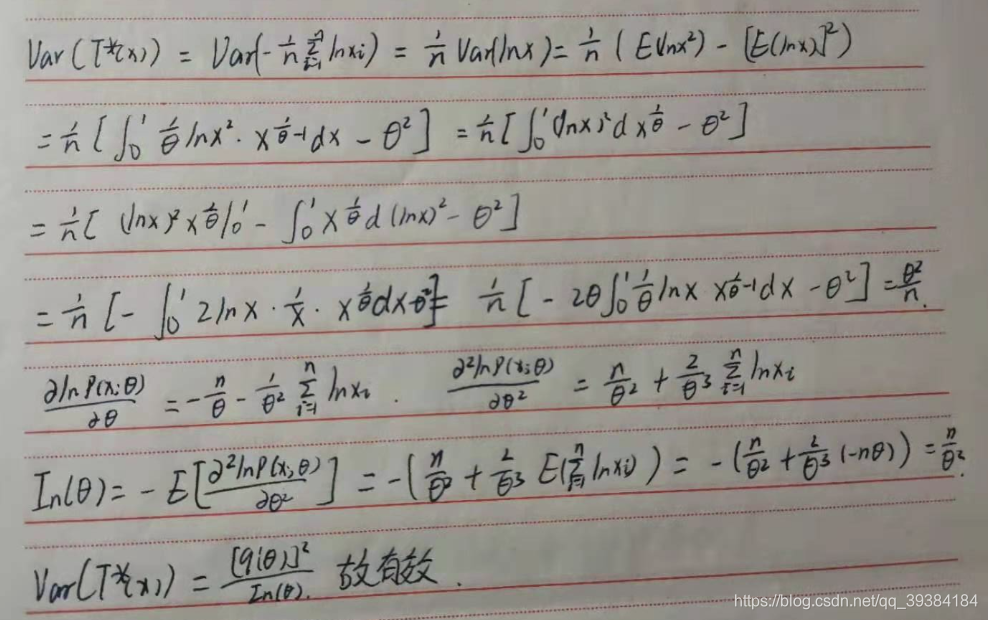 Var(T*(x)) = Var(-1/n Σ_{i=1}^{n} lnxi) = 1/n Var(lnx) = 1/n (E(lnx²) - [E(lnx)]²)
= 1/n [∫₀¹ 1/θ lnx² · x^{1/θ-1} dx - θ²] = 1/n [∫₀¹ (lnx)² d x^{1/θ} - θ²]
= 1/n [(lnx)² x^{1/θ}|₀¹ - ∫₀¹ x^{1/θ} d(lnx)² - θ²]
= 1/n [-∫₀¹ 2lnx · 1/x · x^{1/θ} dx - θ²] = 1/n [-2θ∫₀¹ 1/θ lnx x^{1/θ-1} dx - θ²] = θ²/n.
∂lnP(x;θ)/∂θ = -n/θ - 1/θ² Σ_{i=1}^{n} lnxi . ∂²lnP(x;θ)/∂θ² = n/θ² + 2/θ³ Σ_{i=1}^{n} lnxi
In(θ) = -E[∂²lnP(x;θ)/∂θ²] = -(n/θ² + 2/θ³ E(Σ_{i=1}^{n} lnxi)) = -(n/θ² + 2/θ³ (-nθ)) = n/θ².
Var(T*(x)) = [q(θ)]²/In(θ). 故有效.
https://blog.csdn.net/qq_39384184